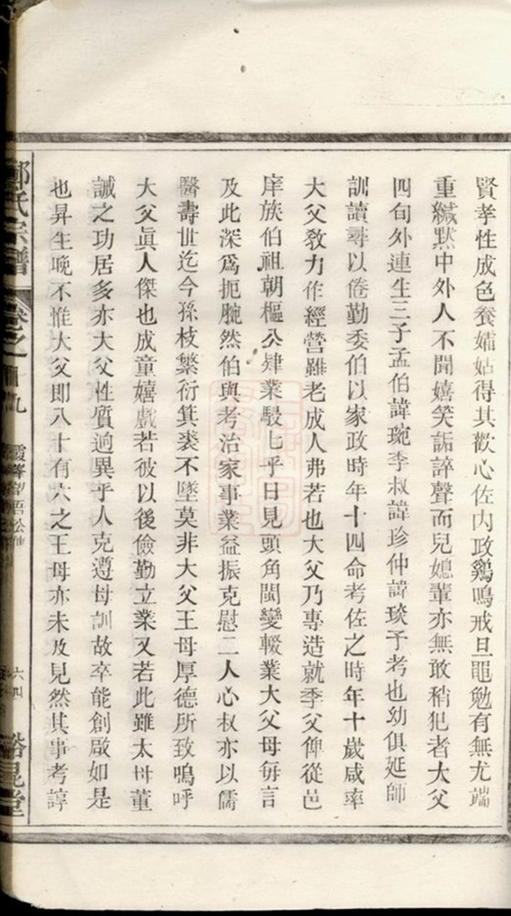 賢孝性成色養孀姑得其歡心佐內政鷄鳴戒旦黽勉有無尤端
重緘默中外人不聞嬉笑詬誶聲而兒媳輩亦無敢稍犯者大父
四旬外連生三子孟伯諱琬季叔諱珍仲諱琰予考也幼俱延師
訓讀尋以倦勤委伯以家政時年十四命考佐之時年十歲咸率
大父敎力作經營雖老成人弗若也大父乃專造就季父俾從邑
庠族伯祖朝樞公肄業駸七乎日見頭角閩變輟業大父母每言
及此深爲扼腕然伯與考治家事業益振克慰二人心叔亦以儒
醫壽世迄今孫枝繁衍箕裘不墜莫非大父王母厚德所致嗚呼
大父眞人傑也成童嬉戲若彼以後儉勤立業又若此雖太母董
誠之功居多亦大父性質逈異乎人克遵母訓故卒能創厥如是
也昇生晚不惟大父即八十有六之王母亦未及見然其事考諄
鄭氏宗譜
卷之
六四